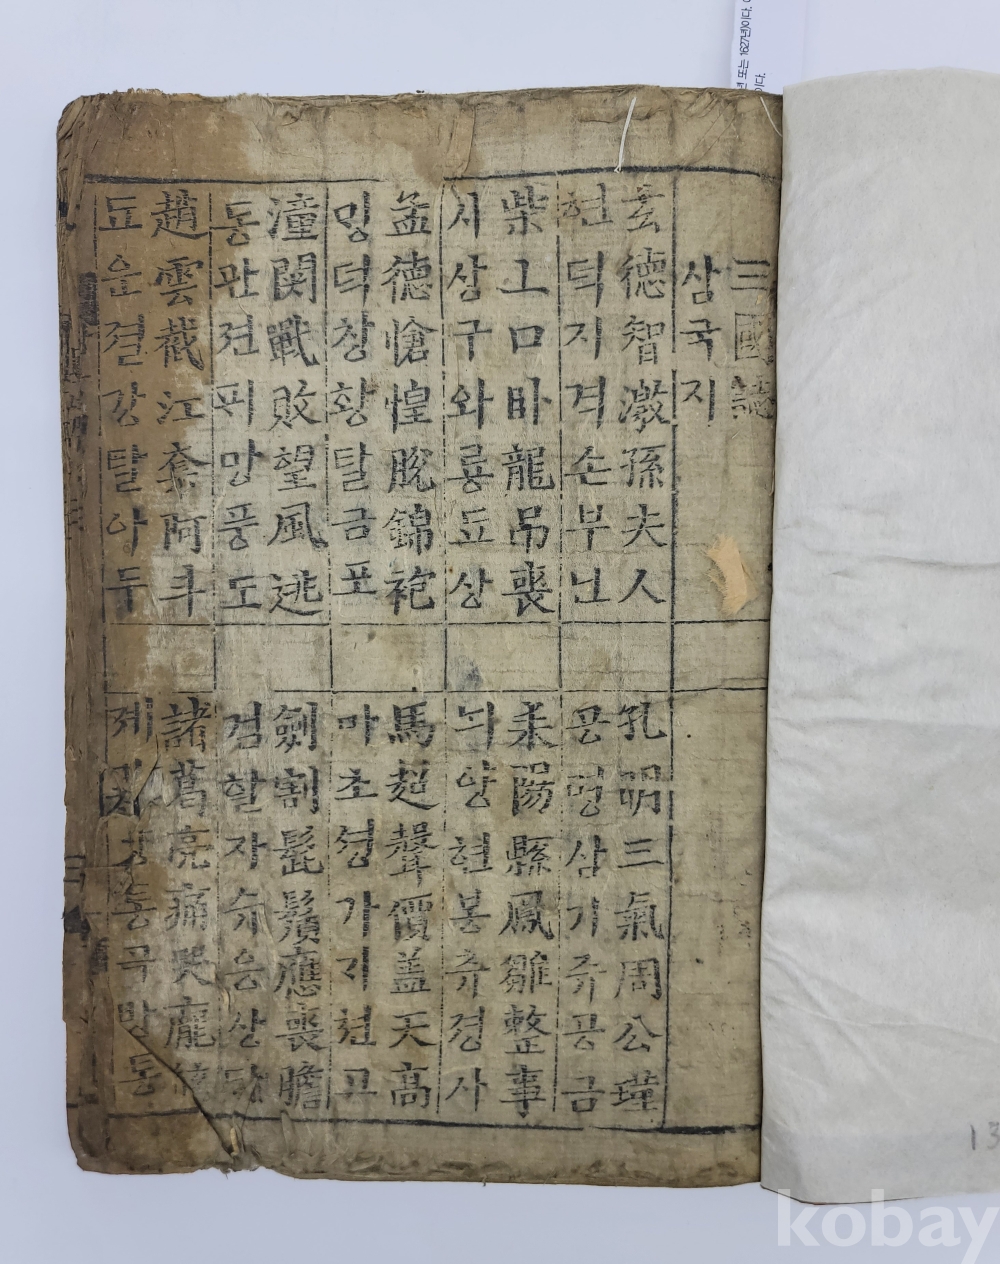 三國誌
삼국지
玄德智激孫夫人
현덕지격손부닌
孔明三氣周公瑾
공명삼기쥬공금
柴그口바龍吊喪
시상구와룡됴상
耒陽縣鳳雛整事
늬양현봉츄졍사
孟德愴惶脫錦袍
밍덕창황탈금포
馬超聲價盖天高
마초셩가기쳔고
潼関戰敗望風逃
동관젼퓌망풍도
劍割髭鬚應喪膽
검할자슈응상담
趙雲截江奪阿斗
됴운졀강탈아두
諸葛亮痛哭龐統
졔갈량통곡방통
또는 1627년이다.
kobay
13